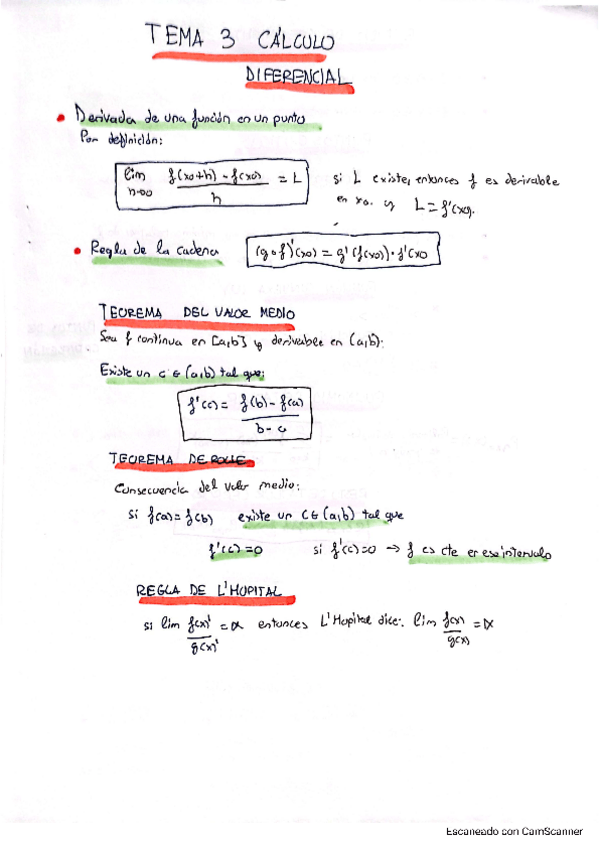 TEMA 3 CÁLCULO
DIFERENCIAL
• Derivada de una función en un punto
Por definición:
lim f(x0+h) - f(x0) = L
h→0 h
si L existe, entonces f es derivable
en x0. y L = f'(x0).
• Regla de la cadena (g∘f)'(x0) = g'(f(x0))·f'(x0
TEOREMA DEL VALOR MEDIO
Sea f continua en [a,b] y derivable en (a,b):
Existe un c ∈ (a,b) tal que:
f'(c) = f(b) - f(a)
b - a
TEOREMA DE ROLLE
Consecuencia del valor medio:
si f(a) = f(b) existe un c ∈ (a,b) tal que
f'(c) = 0 si f'(c) = 0 → f es cte en ese intervalo
REGLA DE L'HOPITAL
si lim f(x)' = α entonces L'Hopital dice: lim f(x) = α
g(x)' g(x)
Escaneado con CamScanner